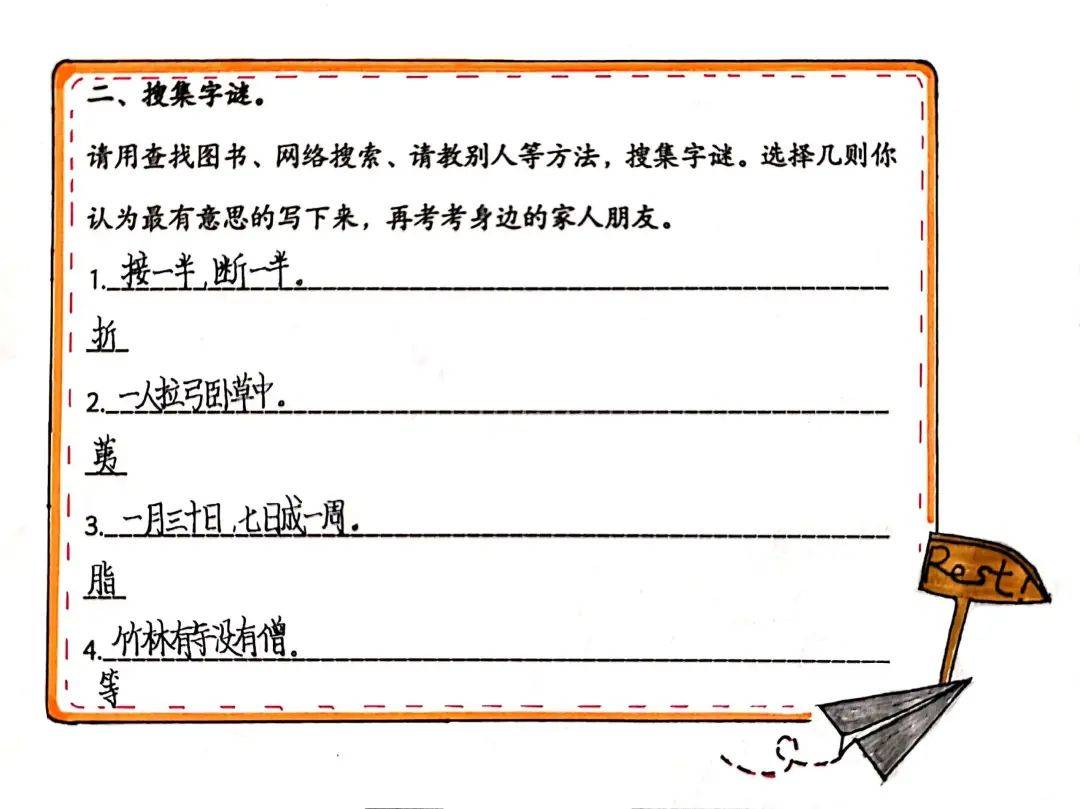 二、搜集字谜。
请用查找图书、网络搜索、请教别人等方法，搜集字谜。选择几则你
认为最有意思的写下来，再考考身边的家人朋友。
1. 接一半，断一半。
折
2. 一人拉弓卧草中。
荑
3. 一月三十日，七日成一周。
脂
4. 竹林有寺没有僧。
等
Rest!